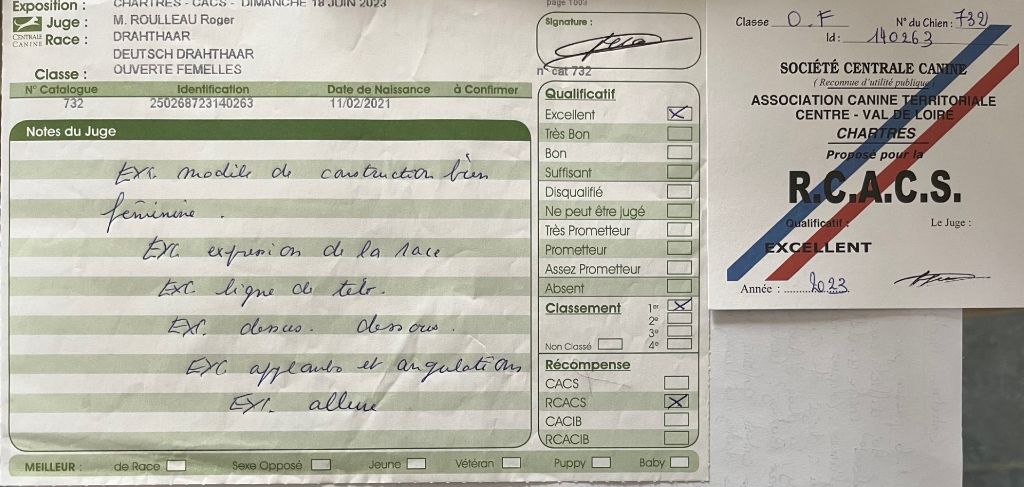 Exposition : CHARTRES - CACS - DIMANCHE 18 JUIN 2023
page 1003
Juge : M. ROULLEAU Roger
CENTRALE CANINE
Race : DRAHTHAAR
DEUTSCH DRAHTHAAR
Classe : OUVERTE FEMELLES
Signature :
n° cat 732
N° Catalogue Identification Date de Naissance à Confirmer
732 250268723140263 11/02/2021
Notes du Juge
Exc. modèle de construction bien
féminine.
Exc expression de la race
Exc. ligne de tête.
Exc. dessus. dessous.
Exc applombs et angulations
Exc. allure
Qualificatif
Excellent
Très Bon
Bon
Suffisant
Disqualifié
Ne peut être jugé
Très Prometteur
Prometteur
Assez Prometteur
Absent
Classement 1er
2e
3e
Non Classé 4e
Récompense
CACS
RCACS
CACIB
RCACIB
MEILLEUR : de Race Sexe Opposé Jeune Vétéran Puppy Baby
Classe O.F N° du Chien : 732
Id : 140263
SOCIÉTÉ CENTRALE CANINE
( Reconnue d'utilité publique )
ASSOCIATION CANINE TERRITORIALE
CENTRE - VAL DE LOIRE
CHARTRES
Proposé pour la
R.C.A.C.S.
Qualificatif : Le Juge :
EXCELLENT
Année : 2023